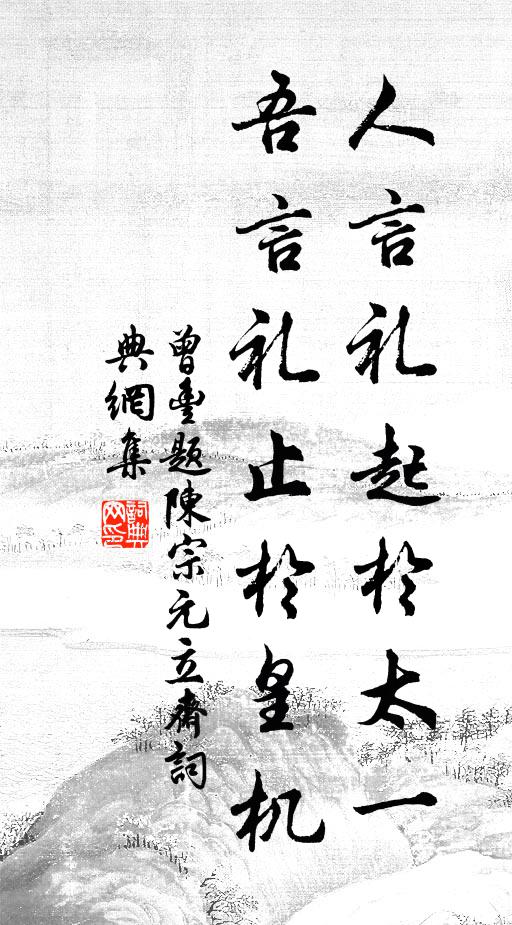 人言礼起於太一
吾言礼止於皇机
曾豐题陳宗元立齋詞
典網集
詞典
网印